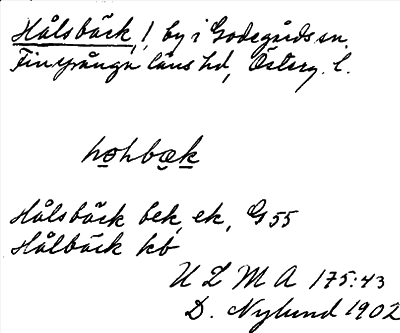 Hålsbäck, ! by i Godegårds sn.
Finspånga läns hd, Österg. l.
hohbæk
Hålsbäck bek, ek, G 55
Hålbäck kb
U L M A 175:43
D. Nylund 1902